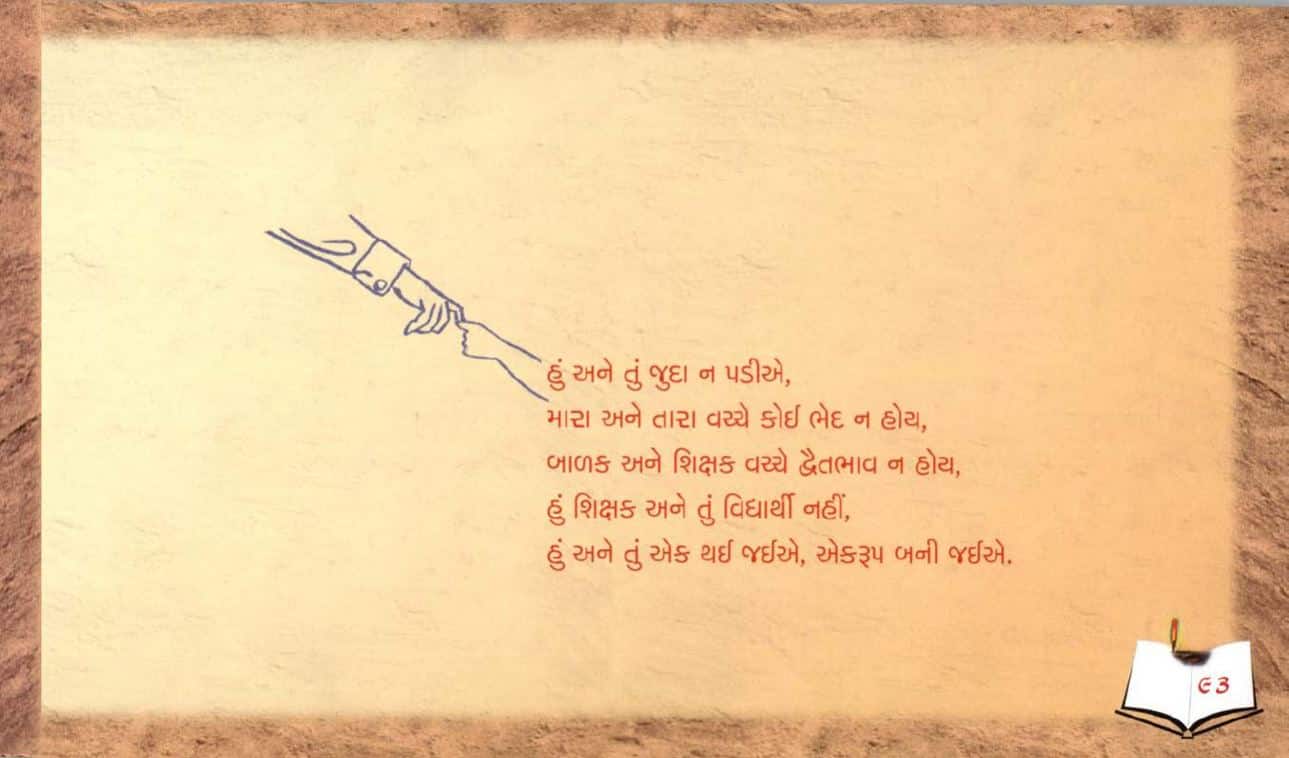 હું અને તું જુદા ન પડીએ,
મારા અને તારા વચ્ચે કોઈ ભેદ ન હોય,
બાળક અને શિક્ષક વચ્ચે દ્વૈતભાવ ન હોય,
હું શિક્ષક અને તું વિદ્યાર્થી નહીં,
હું અને તું એક થઈ જઈએ, એકરૂપ બની જઈએ.
૯૩